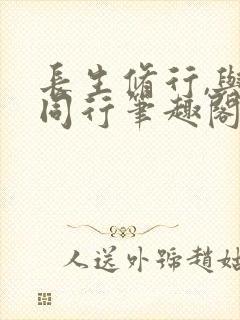 長生脩行,與
同行筆趣閣
人送外號趙姑